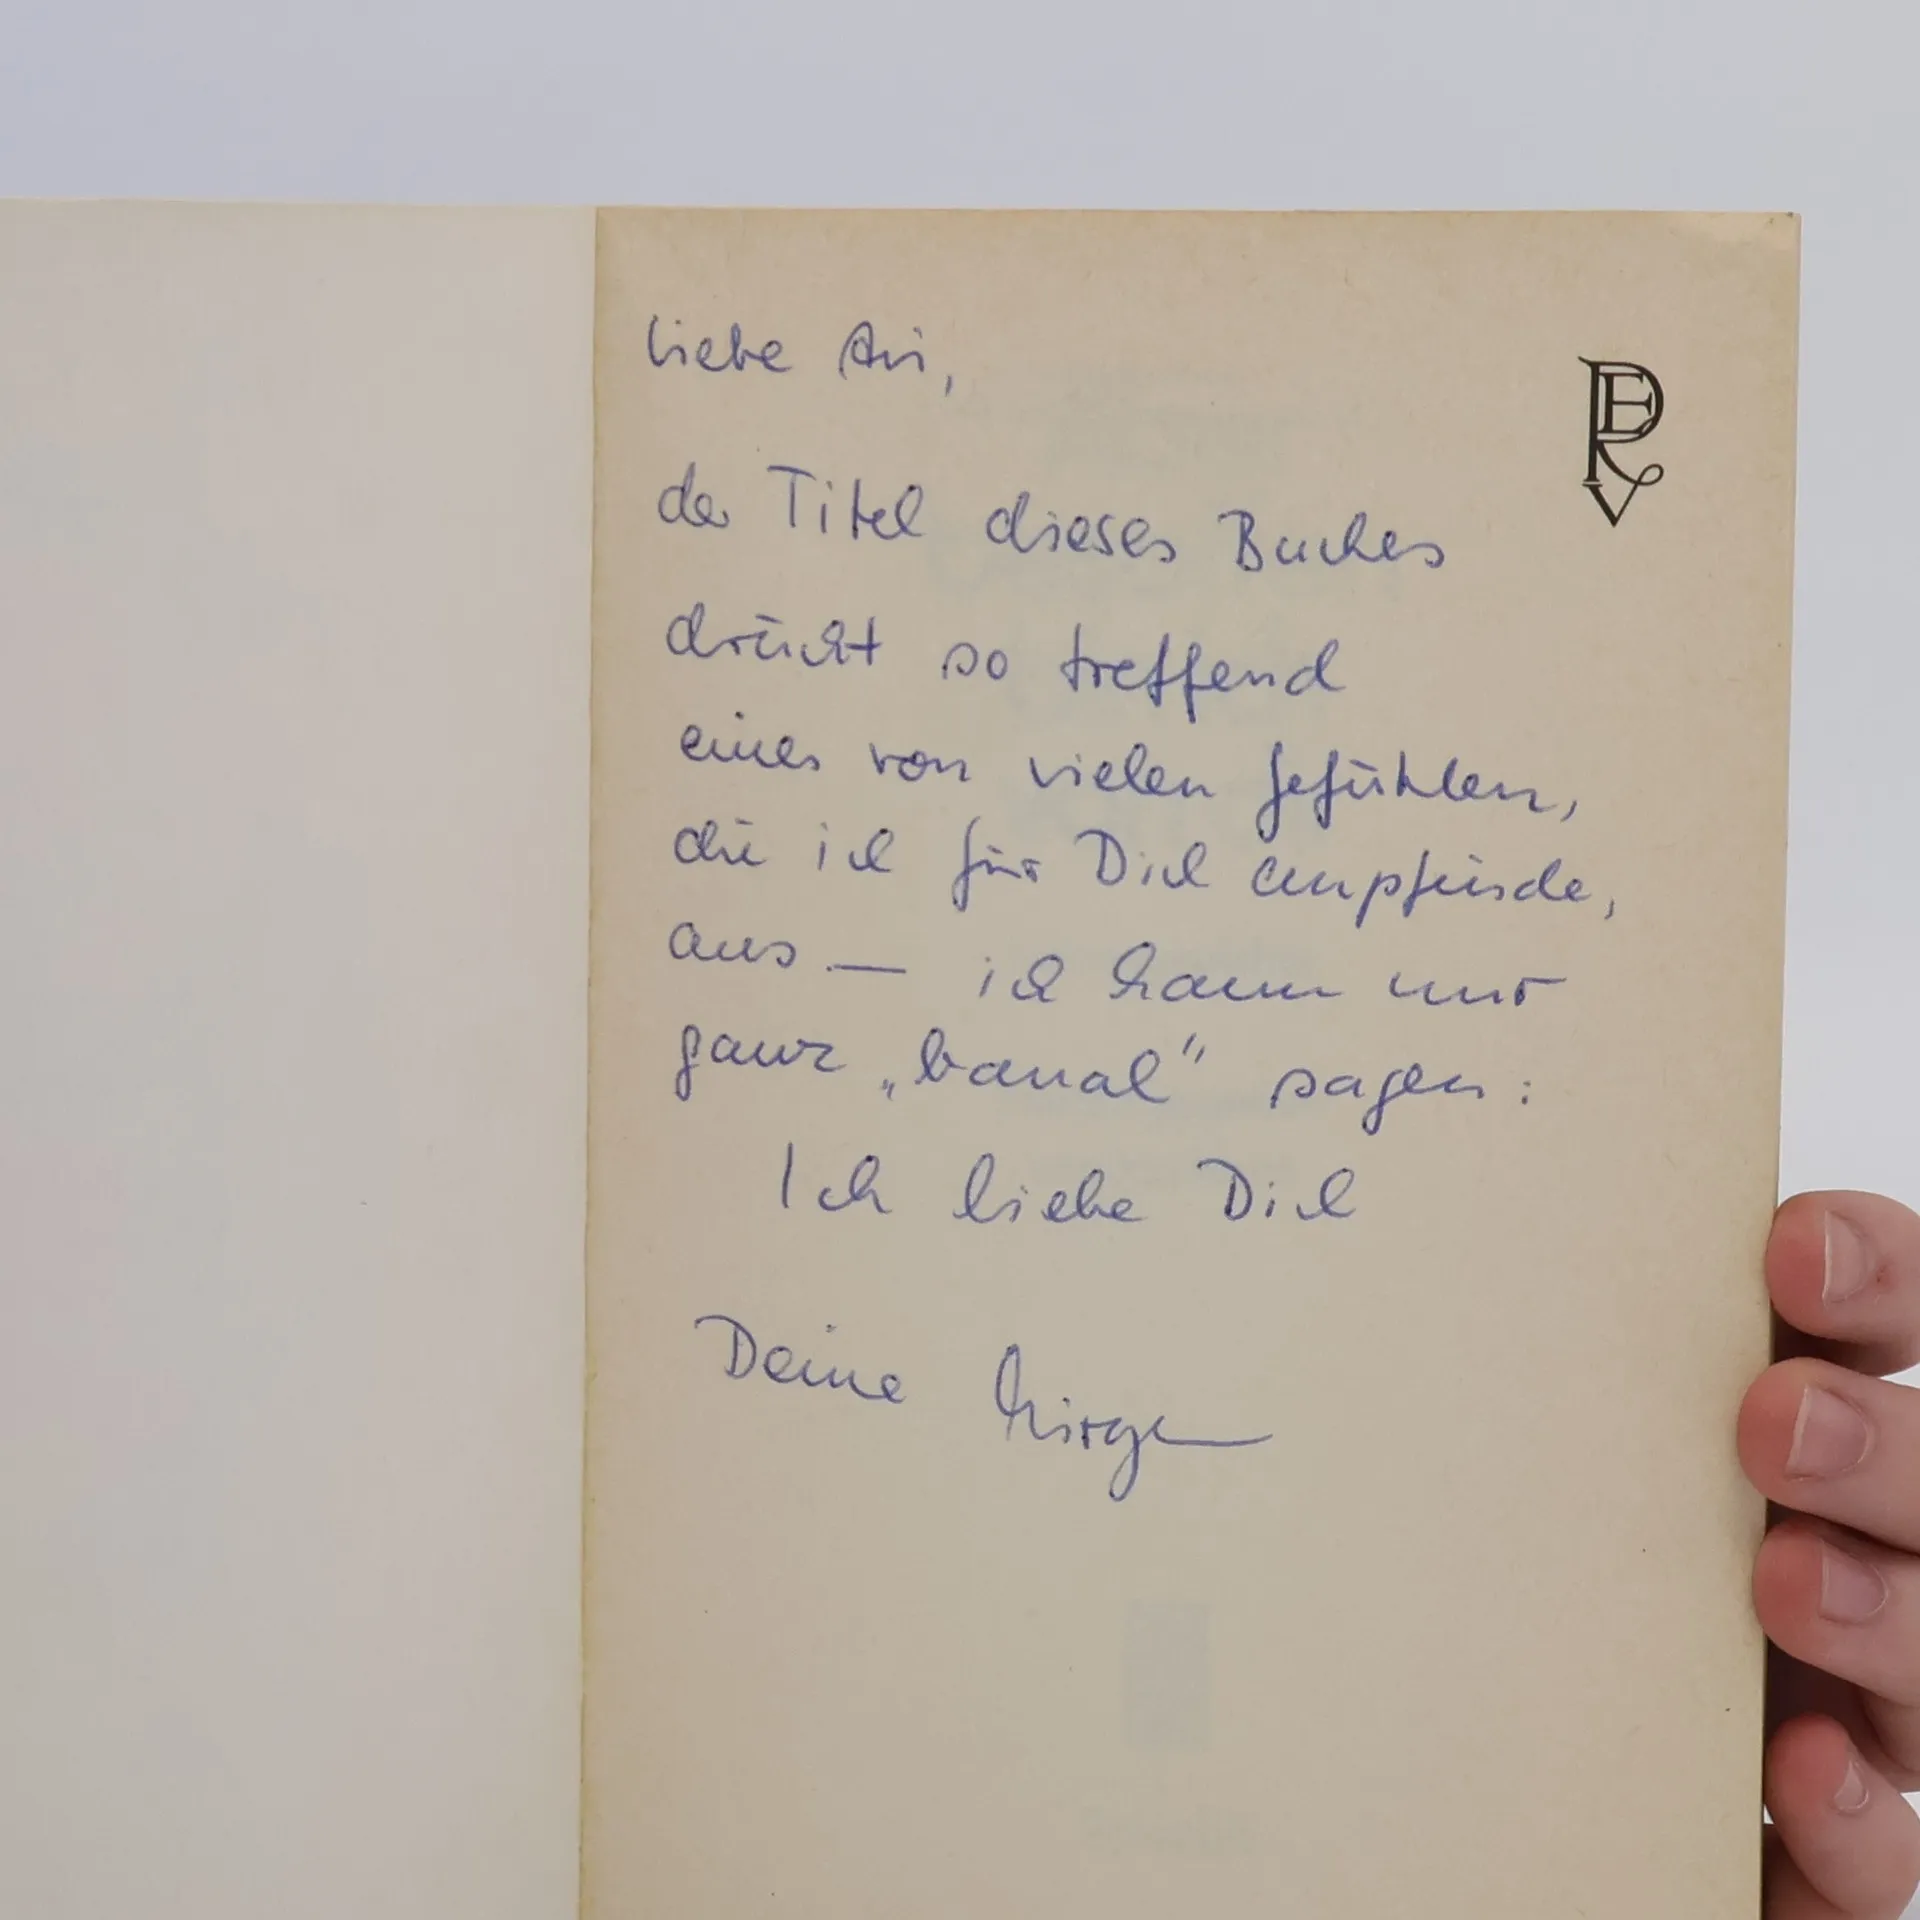 Liebe
der Titel dieses Buches
drückt so treffend
eines von vielen Gefühlen,
die ich für Dich empfinde,
aus — ich kann nur
ganz „banal" sagen:
Ich liebe Dich
Deine